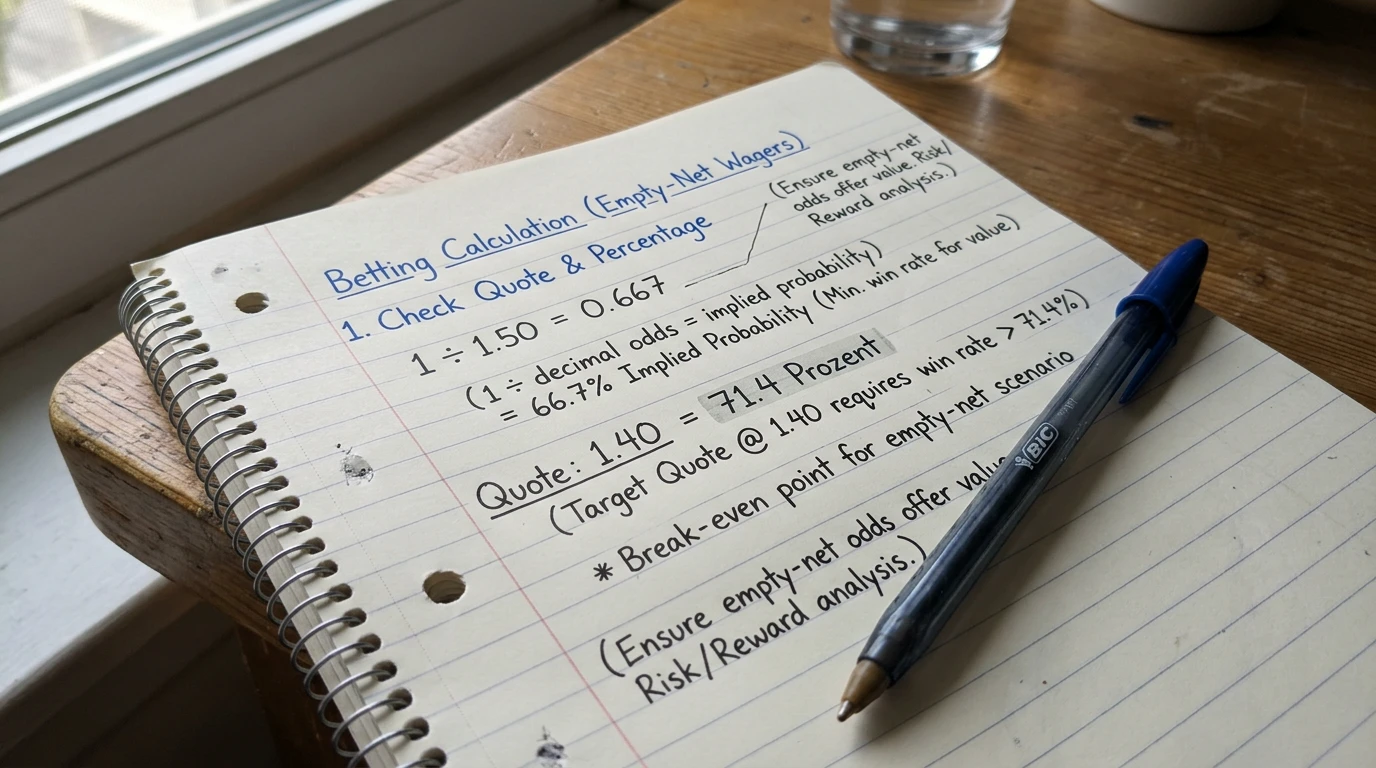 Betting Calculation (Empty-Net Wagers)
1. Check Quote & Percentage
(Ensure empty-net
odds offer value. Risk/
Reward analysis.)
1 ÷ 1.50 = 0.667
(1 ÷ decimal odds = implied probability)
= 66.7% Implied Probability (Min. win rate for value)
Quote: 1.40 = 71.4 Prozent
(Target Quote @ 1.40 requires win rate > 71.4%)
* Break-even point for empty-net scenario
(Ensure empty-net odds offer value
Risk/Reward analysis.)
BIC